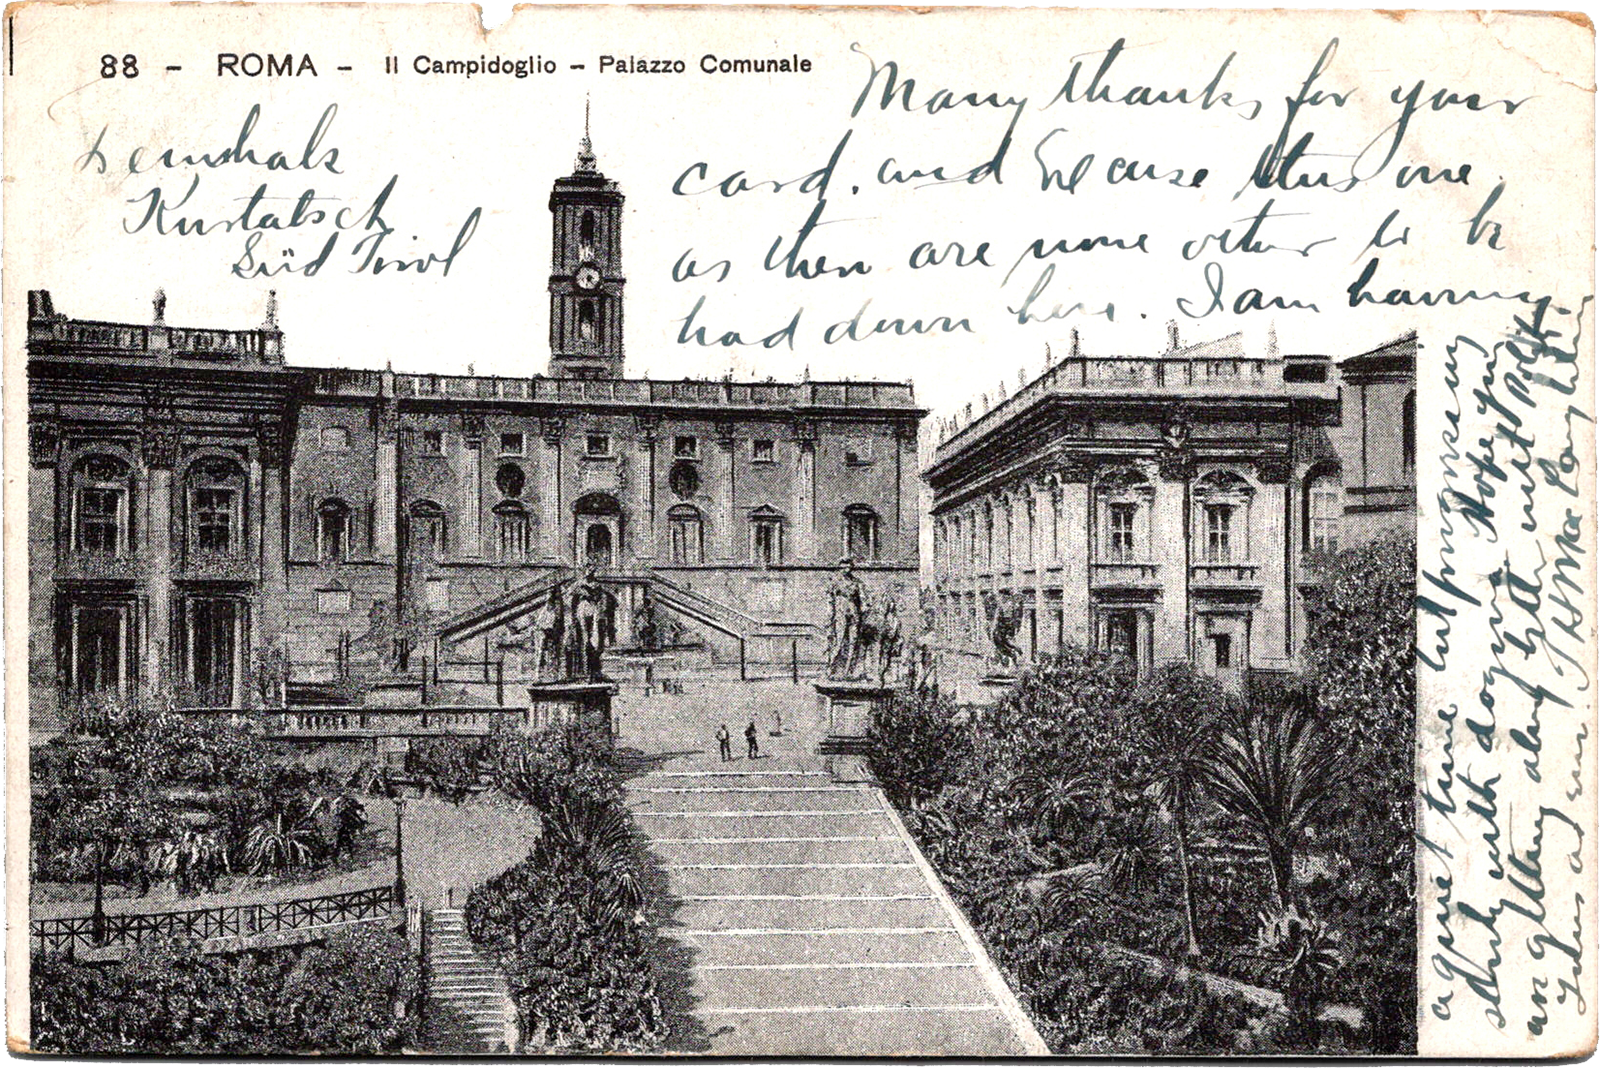 88 - ROMA - Il Campidoglio - Palazzo Comunale
Kurtatsch
Süd Tirol
Many thanks for your
card. and excuse this one
as there are none other to be
had down here. I am having
a quiet time but progressing
slowly with dogma. Hope you
are getting along better with
Yours as ever. J H